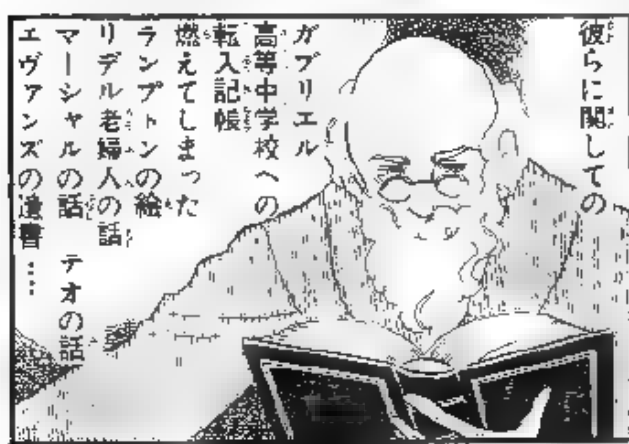 彼らに関しての
ガブリエル
高等中学校への
転入記帳
燃えてしまった
ランプトンの絵
リデル老婦人の話
マーシャルの話 テオの話
エヴァンズの遺書…